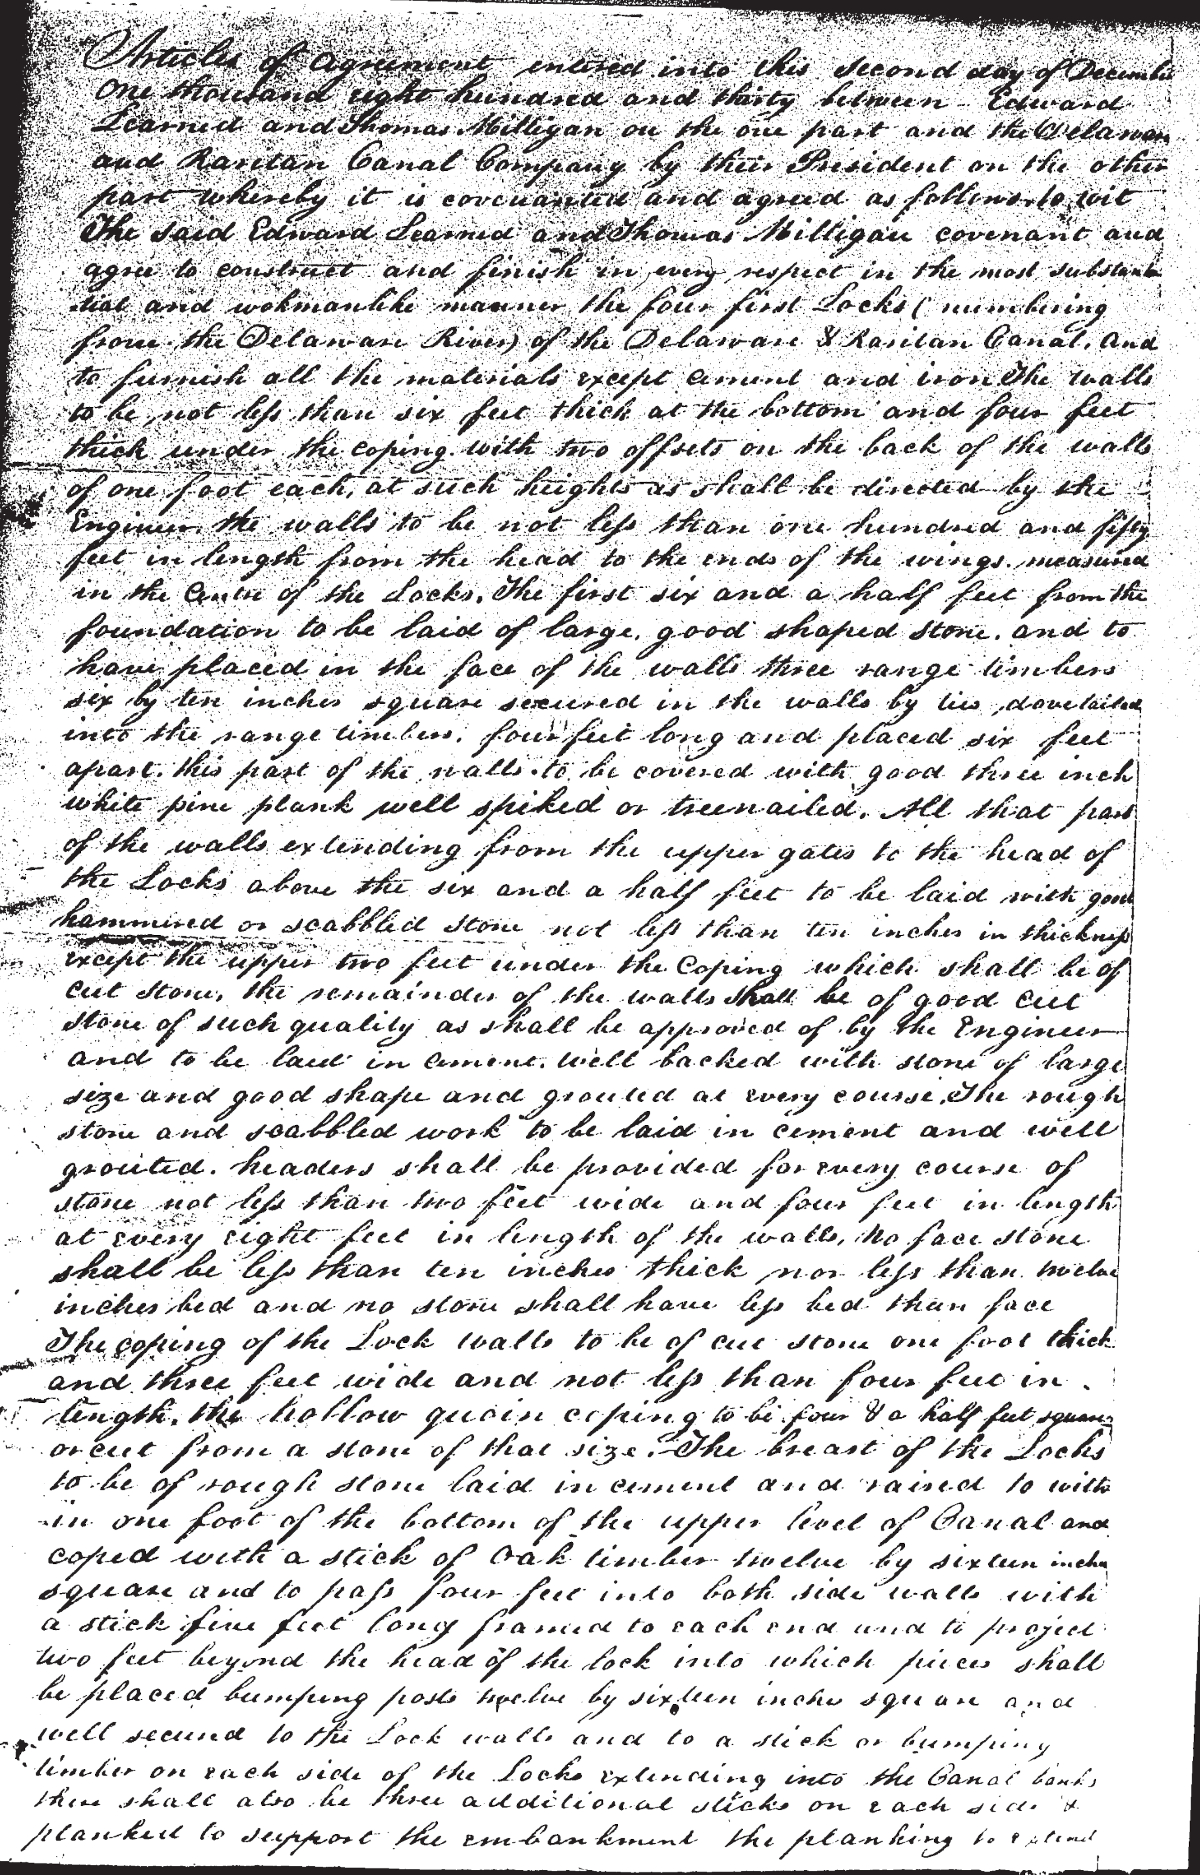 Articles of agreement entered into this second day of December
One thousand eight hundred and thirty between Edward
Learned and Thomas Milligan on the one part and the Delaware
and Raritan Canal Company by their President on the other
part whereby it is covenanted and agreed as follows, to wit
The said Edward Learned and Thomas Milligan covenant and
agree to construct and finish in every respect in the most substan
tial and wokmanlike manner the four first Locks (numbering
from the Delaware River) of the Delaware & Raritan Canal. and
to furnish all the materials except cement and iron The walls
to be not less than six feet thick at the bottom and four feet
thick under the coping with two offsets on the back of the walls
of one foot each, at such heights as shall be directed by the
Engineer. the walls to be not less than one hundred and fifty
feet in length from the head to the ends of the wings. measured
in the Centre of the Locks. The first six and a half feet from the
foundation to be laid of large, good shaped stone. and to
have placed in the face of the walls three range timbers
six by ten inches square secured in the walls by ties, dovetailed
into the range timbers. four feet long and placed six feet
apart. this part of the walls to be covered with good three inch
white pine plank well spiked or treenailed. All that part
of the walls extending from the upper gates to the head of
the Locks above the six and a half feet to be laid with good
hammered or scabbled stone not less than ten inches in thickness
except the upper two feet under the Coping which shall be of
cut stone. the remainder of the walls shall be of good cut
stone of such quality as shall be approved of by the Engineer
and to be laid in cement. well backed with stone of large
size and good shape and grouted at every course. The rough
stone and scabbled work to be laid in cement and well
grouted. headers shall be provided for every course of
stone not less than two feet wide and four feet in length
at every eight feet in length of the walls. No face stone
shall be less than ten inches thick nor less than twelve
inches bed and no stone shall have less bed than face
The coping of the Lock walls to be of cut stone one foot thick
and three feet wide and not less than four feet in
length. the hollow quoin coping to be four & a half feet square
or cut from a stone of that size. The breast of the Locks
to be of rough stone laid in cement and raised to with
in one foot of the bottom of the upper level of Canal and
coped with a stick of Oak timber twelve by sixteen inches
square and to pass four feet into both side walls with
a stick five feet long framed to each end and to project
two feet beyond the head of the lock into which pieces shall
be placed bumping posts twelve by sixteen inches square and
well secured to the Lock walls and to a stick or bumping
timber on each side of the Locks extending into the Canal banks
there shall also be three additional sticks on each side &
planked to support the embankment the planking to extend